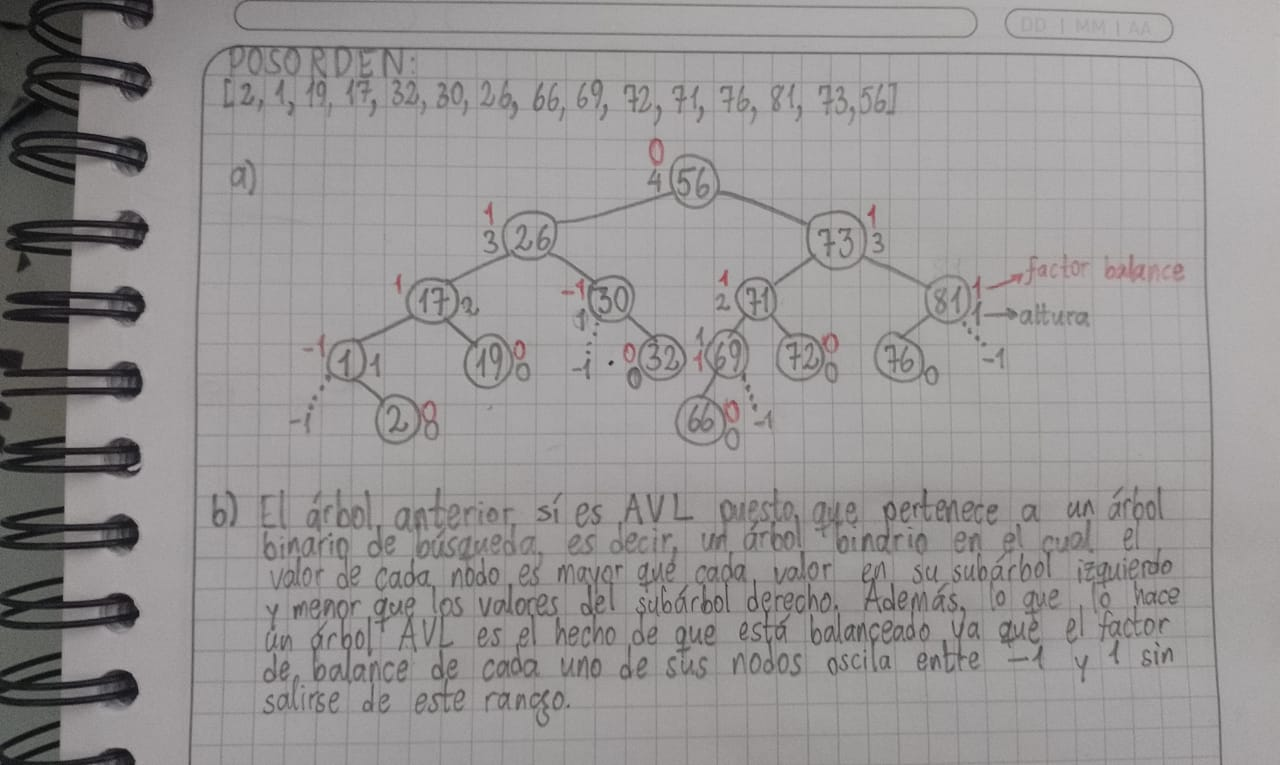 DD | MM | AA
POSORDEN:
[2, 1, 19, 17, 32, 30, 26, 66, 69, 72, 71, 76, 81, 73, 56]
a)
0
4 56
1
3 26
1
73 3
1
17 2
-1
1 30
1
2 71
81 1 → factor balance
1 → altura
-1 1 1
19 0
0
-1
0 32
0
1
1 69
72 0
0
76 0
-1
-1
2 0
0
66 0
0
-1
b) El árbol anterior sí es AVL puesto que pertenece a un árbol
binario de búsqueda, es decir, un árbol binario en el cual el
valor de cada nodo es mayor que cada valor en su subárbol izquierdo
y menor que los valores del subárbol derecho. Además, lo que lo hace
un árbol AVL es el hecho de que está balanceado ya que el factor
de balance de cada uno de sus nodos oscila entre -1 y 1 sin
salirse de este rango.